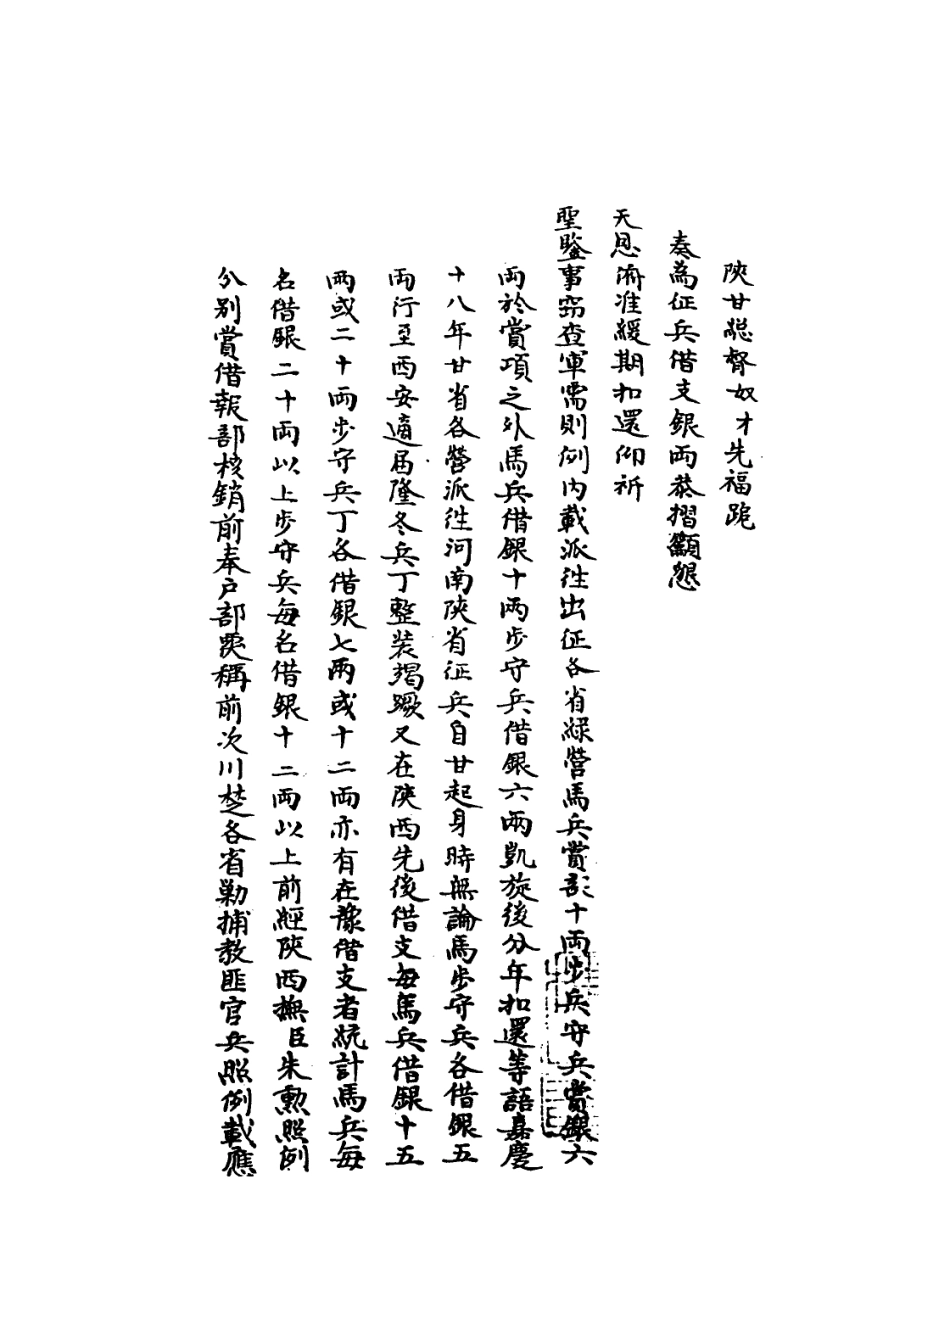 陝甘總督奴才先福跪
奏為征兵借支銀兩恭摺籲懇
天恩府准緩期扣還仰祈
聖鑒事竊查軍需則例內載派往出征各省綠營馬兵賞銀十兩步兵守兵賞銀六
兩於賞項之外馬兵借銀十兩步守兵借銀六兩凱旋後分年扣還等語嘉慶
十八年甘省各營派往河南陝省征兵自甘起身時無論馬步守兵各借銀五
兩行至西安適屆隆冬兵丁整裝竭蹶又在陝西先後借支每馬兵借銀十五
兩或二十兩步守兵丁各借銀七兩或十二兩亦有在豫借支者統計馬兵每
名借銀二十兩以上步守兵每名借銀十二兩以上前經陝西撫臣朱勳照例
分別賞借報部核銷前奉戶部覆稱前次川楚各省勦捕教匪官兵照例載應